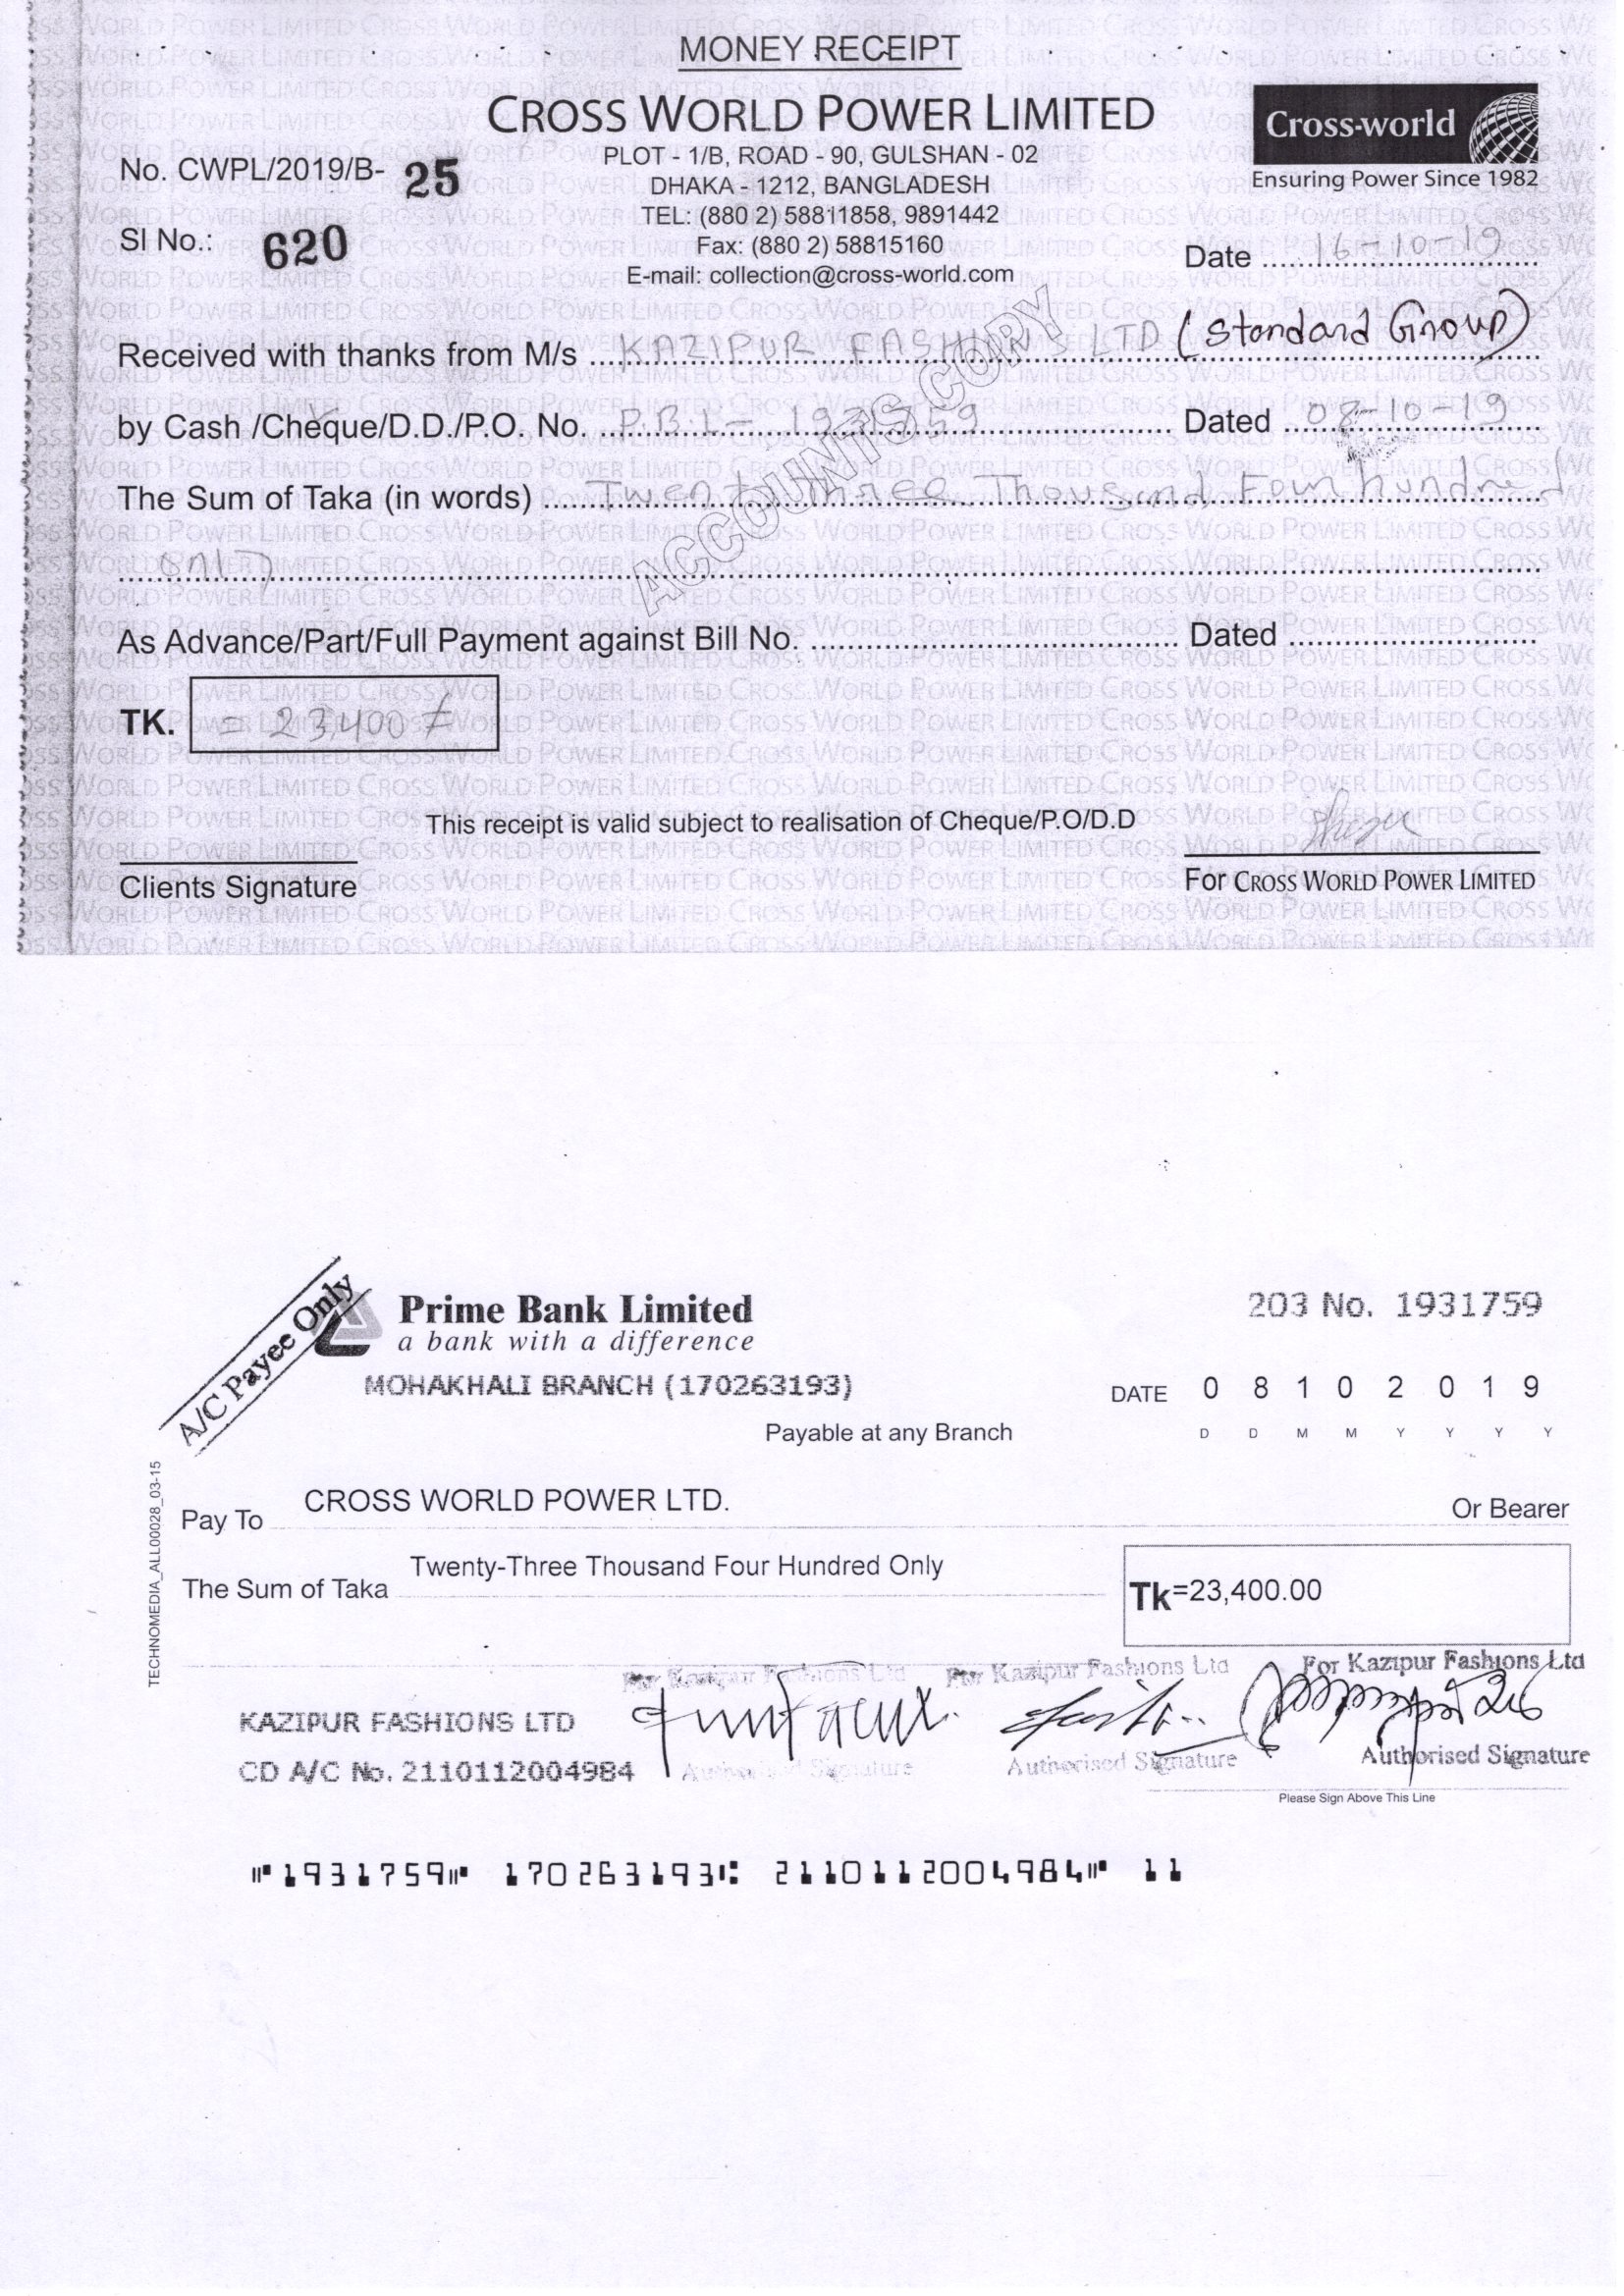 MONEY RECEIPT
CROSS WORLD POWER LIMITED
Cross-world
Ensuring Power Since 1982
PLOT - 1/B, ROAD - 90, GULSHAN - 02
No. CWPL/2019/B- 25
DHAKA - 1212, BANGLADESH
TEL: (880 2) 58811858, 9891442
Sl No.: 620
Fax: (880 2) 58815160
Date 16-10-19
E-mail: collection@cross-world.com
Received with thanks from M/s KAZIPUR FASHIONS LTD (Standard Group)
by Cash /Cheque/D.D./P.O. No. P.B.L - 1931759 Dated 08-10-19
The Sum of Taka (in words) Twenty Three Thousand Four hundred
only
ACCOUNTS COPY
As Advance/Part/Full Payment against Bill No. Dated
TK. = 23,400/=
This receipt is valid subject to realisation of Cheque/P.O/D.D
Clients Signature
For CROSS WORLD POWER LIMITED
A/C Payee Only
Prime Bank Limited
a bank with a difference
203 No. 1931759
MOHAKHALI BRANCH (170263193)
DATE 0 8 1 0 2 0 1 9
D D M M Y Y Y Y
Payable at any Branch
Pay To CROSS WORLD POWER LTD. Or Bearer
The Sum of Taka Twenty-Three Thousand Four Hundred Only
Tk=23,400.00
TECHNOMEDIA_ALL00028_03-15
For Kazipur Fashions Ltd For Kazipur Fashions Ltd For Kazipur Fashions Ltd
KAZIPUR FASHIONS LTD
CD A/C No. 2110112004984
Authorised Signature Authorised Signature Authorised Signature
Please Sign Above This Line
⑈1931759⑈ 170263193⑆ 2110112004984⑈ 11